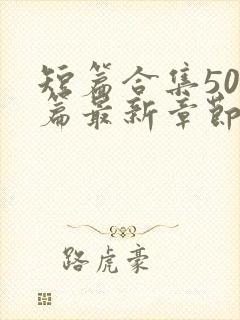 短篇合集50
篇最新章節
路虎豪